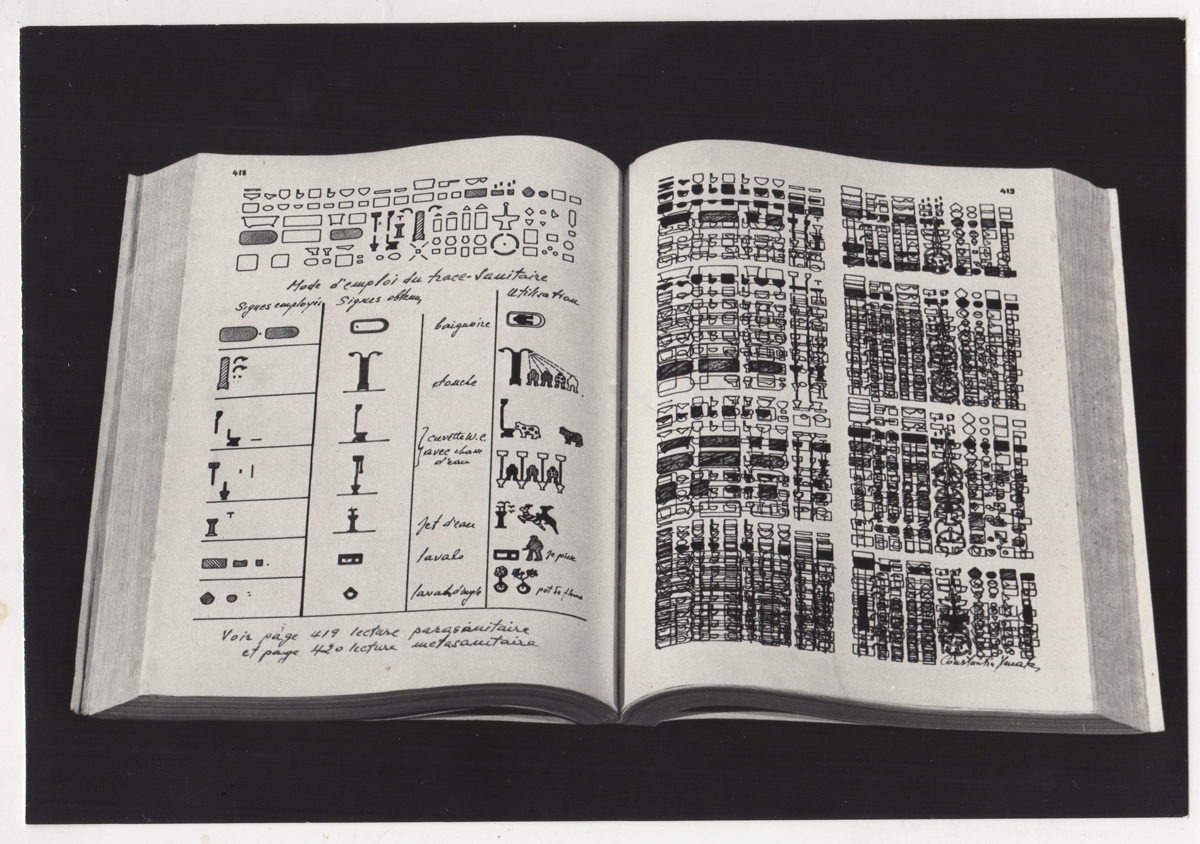 418
Mode d'emploi du trace-sanitaire
Signes employés
Signes obtenus
Utilisation
baignoire
douche
cuvette W.C
avec chasse
d'eau
Jet d'eau
lavabo
lavabo d'angle
Voir page 419 lecture parasanitaire
et page 420 lecture metasanitaire
419
Constantin Xenakis